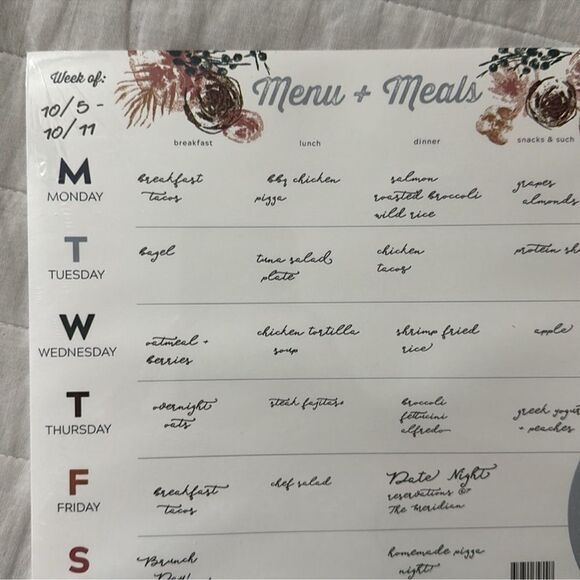 Week of:
10/5 -
10/11
Menu + Meals
breakfast
lunch
dinner
snacks & such
M
MONDAY
breakfast
tacos
bbq chicken
pizza
salmon
roasted broccoli
wild rice
grapes
almonds
T
TUESDAY
bagel
tuna salad
plate
chicken
tacos
protein sh
W
WEDNESDAY
oatmeal +
berries
chicken tortilla
soup
shrimp fried
rice
apple
T
THURSDAY
overnight
oats
steak fajitas
broccoli
fettucini
alfredo
greek yogurt
+ peaches
F
FRIDAY
breakfast
tacos
chef salad
Date Night
reservations @
The Meridian
S
Brunch
Day!
homemade pizza
night